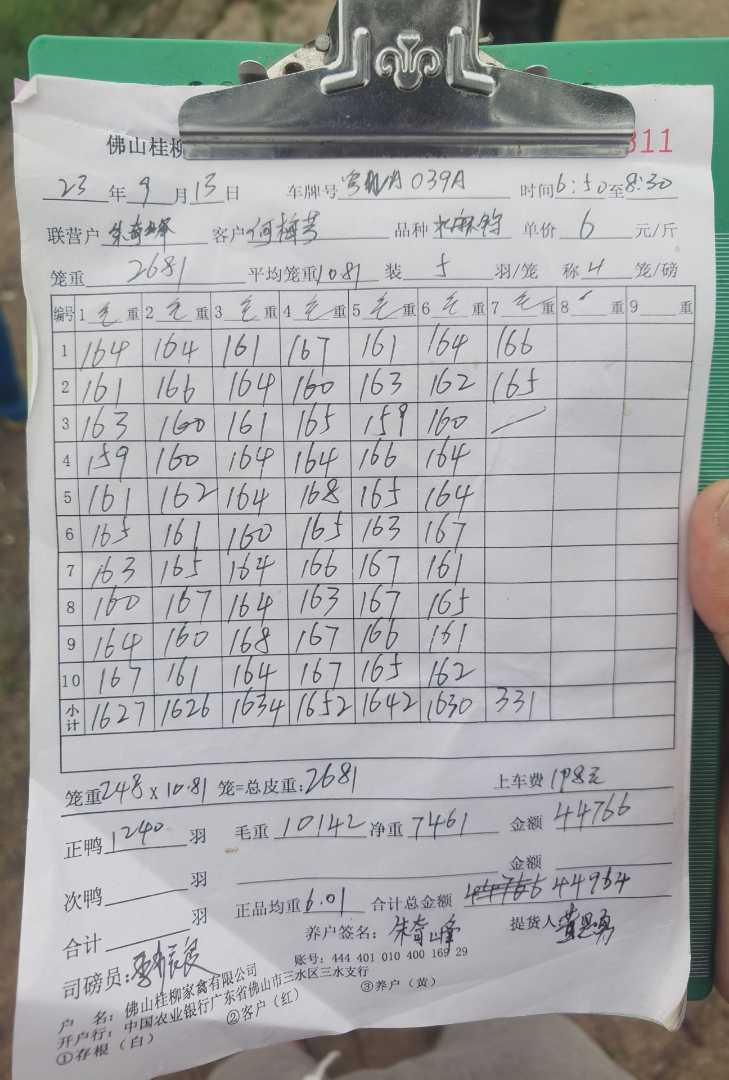 佛山桂柳
311
23 年 9 月 13 日 车牌号 A 039A 时间 6:50 至 8:30
联营户 朱奇峰 客户 何梅芳 品种 单价 6 元/斤
笼重 2681 平均笼重 10.81 装 5 羽/笼 称 4 笼/磅
编号 1 毛 重 2 毛 重 3 毛 重 4 毛 重 5 毛 重 6 毛 重 7 毛 重 8 重 9 重
1 164 164 161 167 161 164 166
2 161 166 164 160 163 162 165
3 163 160 161 165 159 160 /
4 159 160 164 164 166 164
5 161 162 164 168 165 164
6 165 161 160 165 163 167
7 163 165 164 166 167 161
8 160 167 164 163 167 165
9 164 160 168 167 166 161
10 167 161 164 167 165 162
小计 1627 1626 1634 1652 1642 1630 331
笼重 248 x 10.81 笼=总皮重: 2681 上车费 198元
正鸭 1240 羽 毛重 10142 净重 7461 金额 44766
次鸭 羽 金额
合计 羽 正品均重 6.01 合计总金额 44964
司磅员: 养户签名: 朱奇峰 提货人
户 名: 佛山桂柳家禽有限公司 账号: 444 401 010 400 169 29
开户行: 中国农业银行广东省佛山市三水区三水支行
①存根(白) ②客户(红) ③养户(黄)